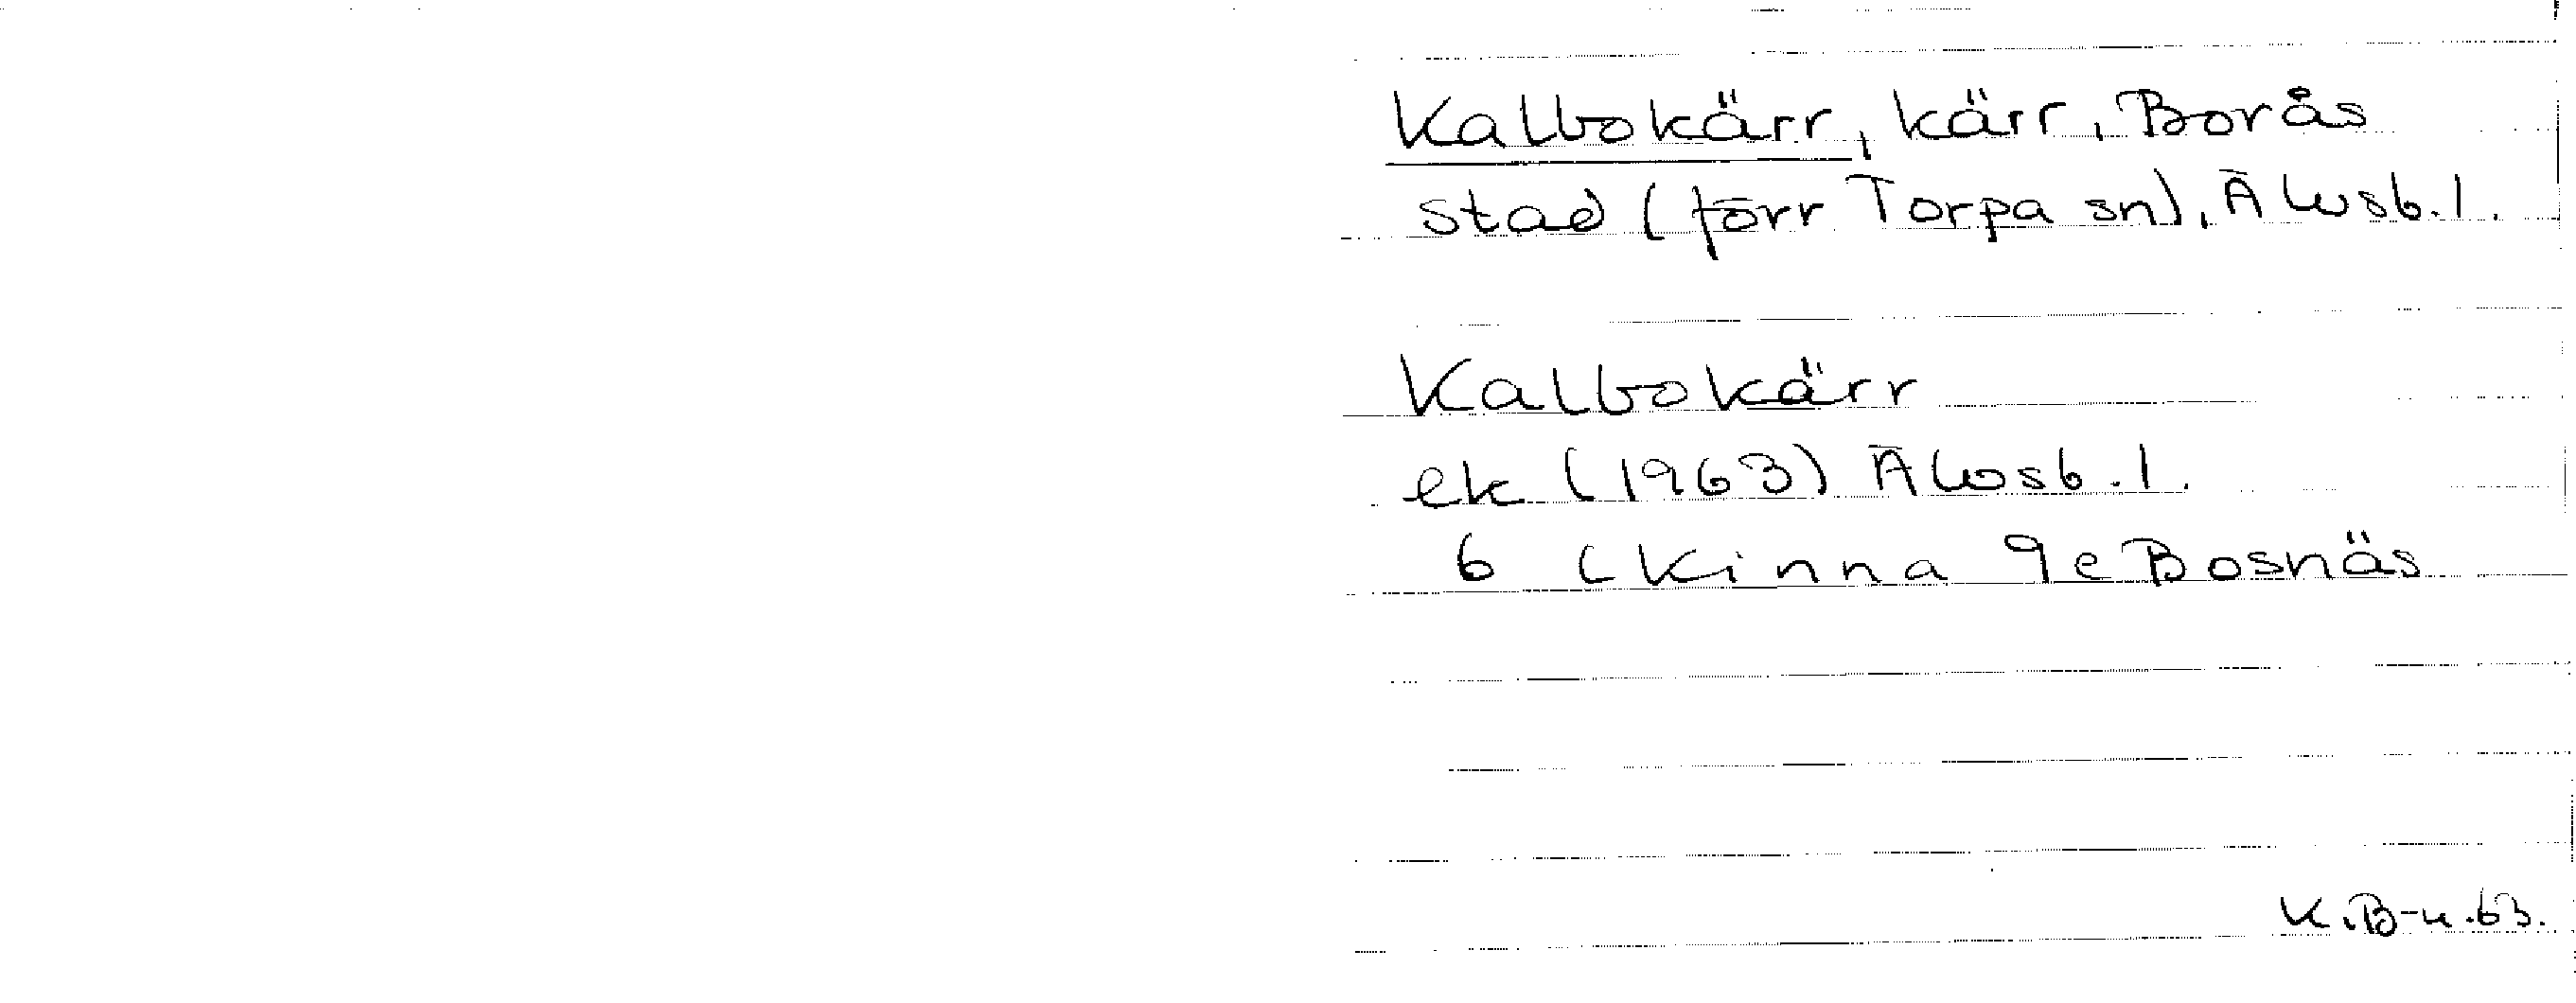 Kalbokärr, kärr, Borås
stad (förr Torpa sn), Älvsb. l.
Kalbokärr
ek (1963) Älvsb. l.
6 C Kinna 9e Bosnäs
K.B-n.63.